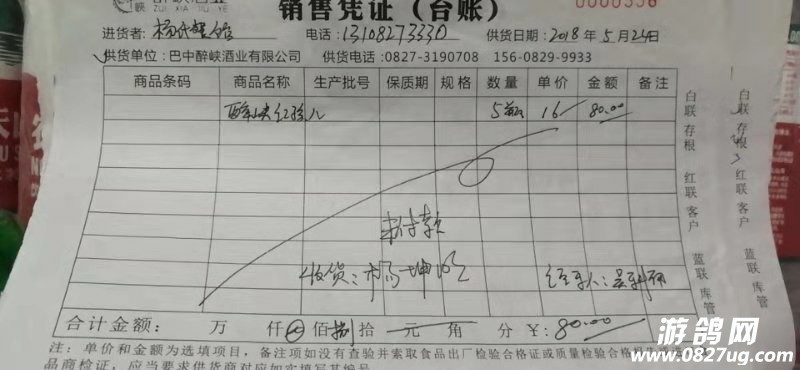 销售凭证（台账）
ZUI XIA JIU YE
0000556
进货者： 电话：13108273330 供货日期：2018年5月24日
供货单位：巴中醉峡酒业有限公司 供货电话:0827-3190708 156-0829-9933
商品条码 商品名称 生产批号 保质期 规格 数量 单价 金额 备注
醉峡红 5 16 80.00
白联存根 红联客户 蓝联库管
白联存根 红联客户 蓝联库管
未付款
收货： 经手人：
合计金额： 万 仟 佰 捌 拾 元 角 分 ￥：80.00
注：单价和金额为选填项目，备注项如没有查验并索取食品出厂检验合格证或质量检验合格
品商检证，应当要求供货商对应如实填写其编号
游鸽网
www.0827ug.com